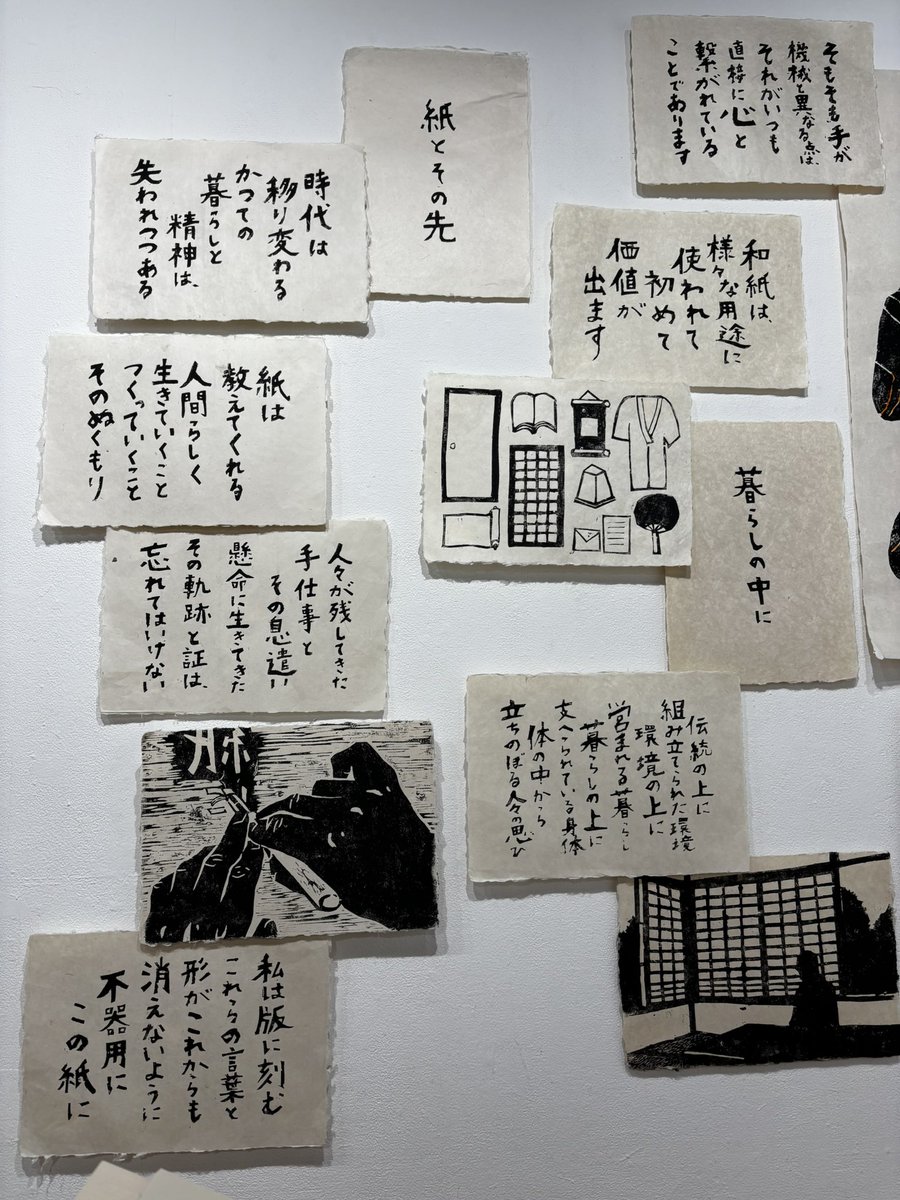 そもそも手が
機械と異なる点は、
それがいつも
直接に心と
繋がれている
ことであります
和紙は、
様々な用途に
使われて
初めて
価値が
出ます
暮らしの中に
伝統の上に
組み立てられた環境
環境の上に
営まれる暮らし
暮らしの上に
支へられている身体
体の中から
立ちのぼる人々の思ひ
紙とその先
時代は
移り変わる
かつての
暮らしと
精神は、
失われつつある
紙は
教えてくれる
人間らしく
生きていくこと
つくっていくこと
そのぬくもり
人々が残してきた
手仕事と
その息遣い
懸命に生きてきた
その軌跡と証は、
忘れてはいけない
私は版に刻む
これらの言葉と
形がこれからも
消えないように
不器用に
この紙に